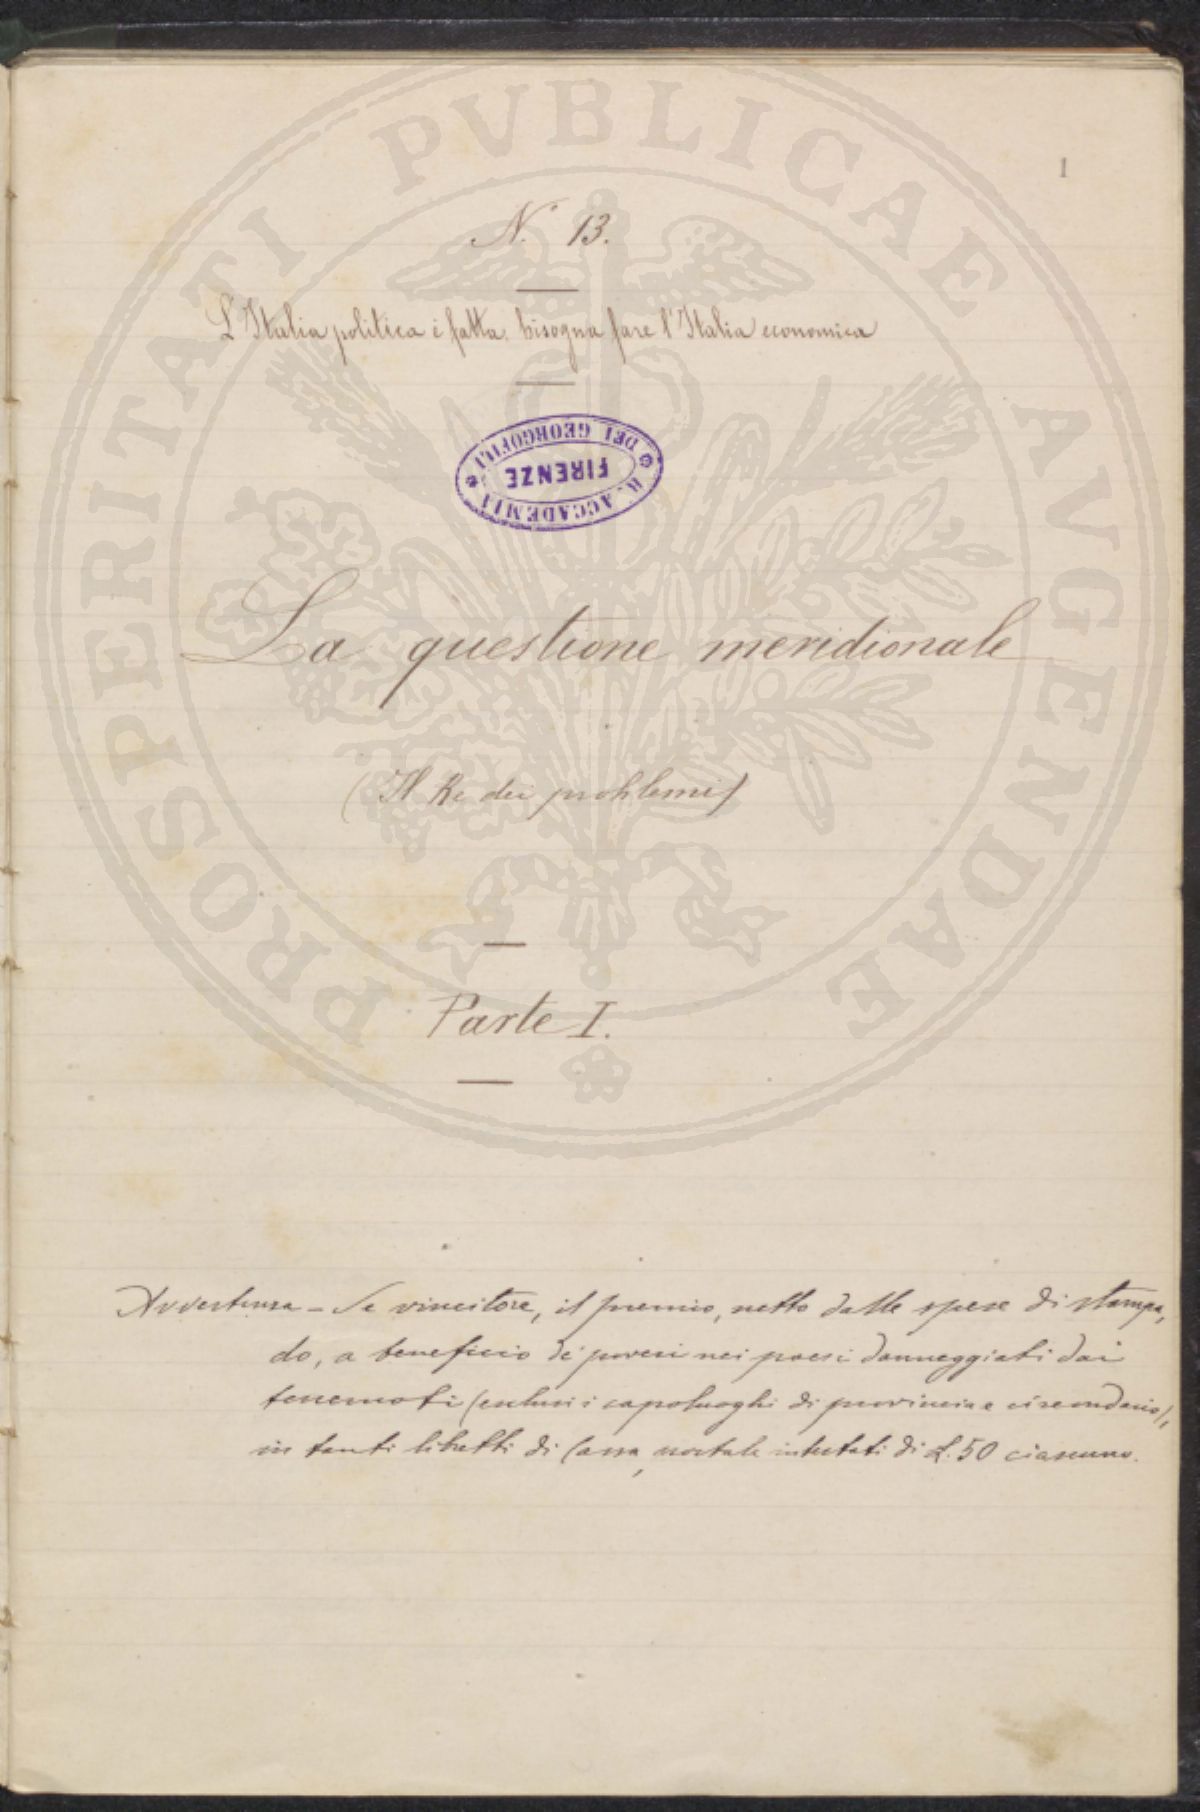 1
N.° 13.
L'Italia politica è fatta, bisogna fare l'Italia economica
R. ACCADEMIA
DEI GEORGOFILI
FIRENZE
La questione meridionale
(Il Re dei problemi)
Parte I.
Avvertenza - Se vincitore, il premio, netto dalle spese di stampa,
do, a beneficio de' poveri nei paesi danneggiati dai
terremoti (esclusi i capoluoghi di provincia e circondario),
in tanti libretti di Cassa postale intestati di L. 50 ciascuno.
PROSPERITATI PVBLICAE AVGENDAE